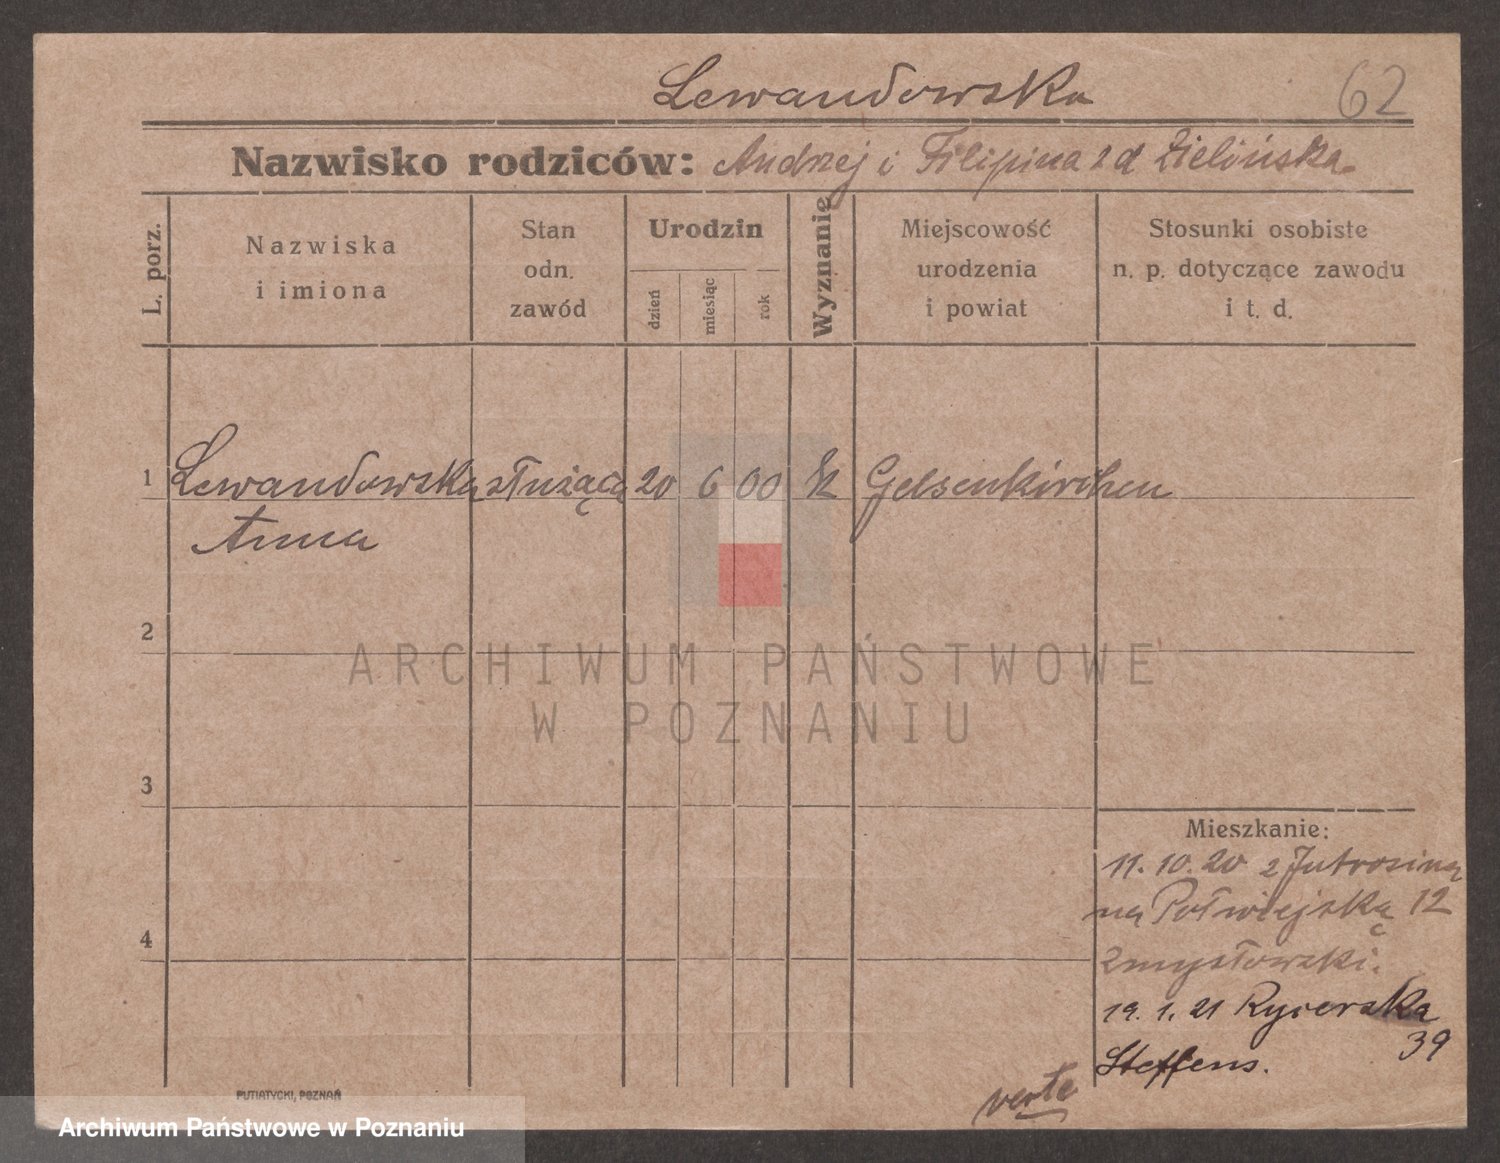 Lewandowska
62
Nazwisko rodziców: Andrzej i Filipina z d Zielińska.
L. porz.
Nazwiska
i imiona
Stan
odn.
zawód
Urodzin
dzień
miesiąc
rok
Wyznanie
Miejscowość
urodzenia
i powiat
Stosunki osobiste
n. p. dotyczące zawodu
i t. d.
1 Lewandowska służąca 20 6 00 k Gelsenkirchen
Anna
2
ARCHIWUM PAŃSTWOWE
W POZNANIU
3
4
Mieszkanie:
11. 10. 20 z Jutrosina
na Półwiejską 12
Zmysłowski.
19. 1. 21 Rycerska
39
Steffens.
verte
PUTIATYCKI, POZNAŃ
Archiwum Państwowe w Poznaniu